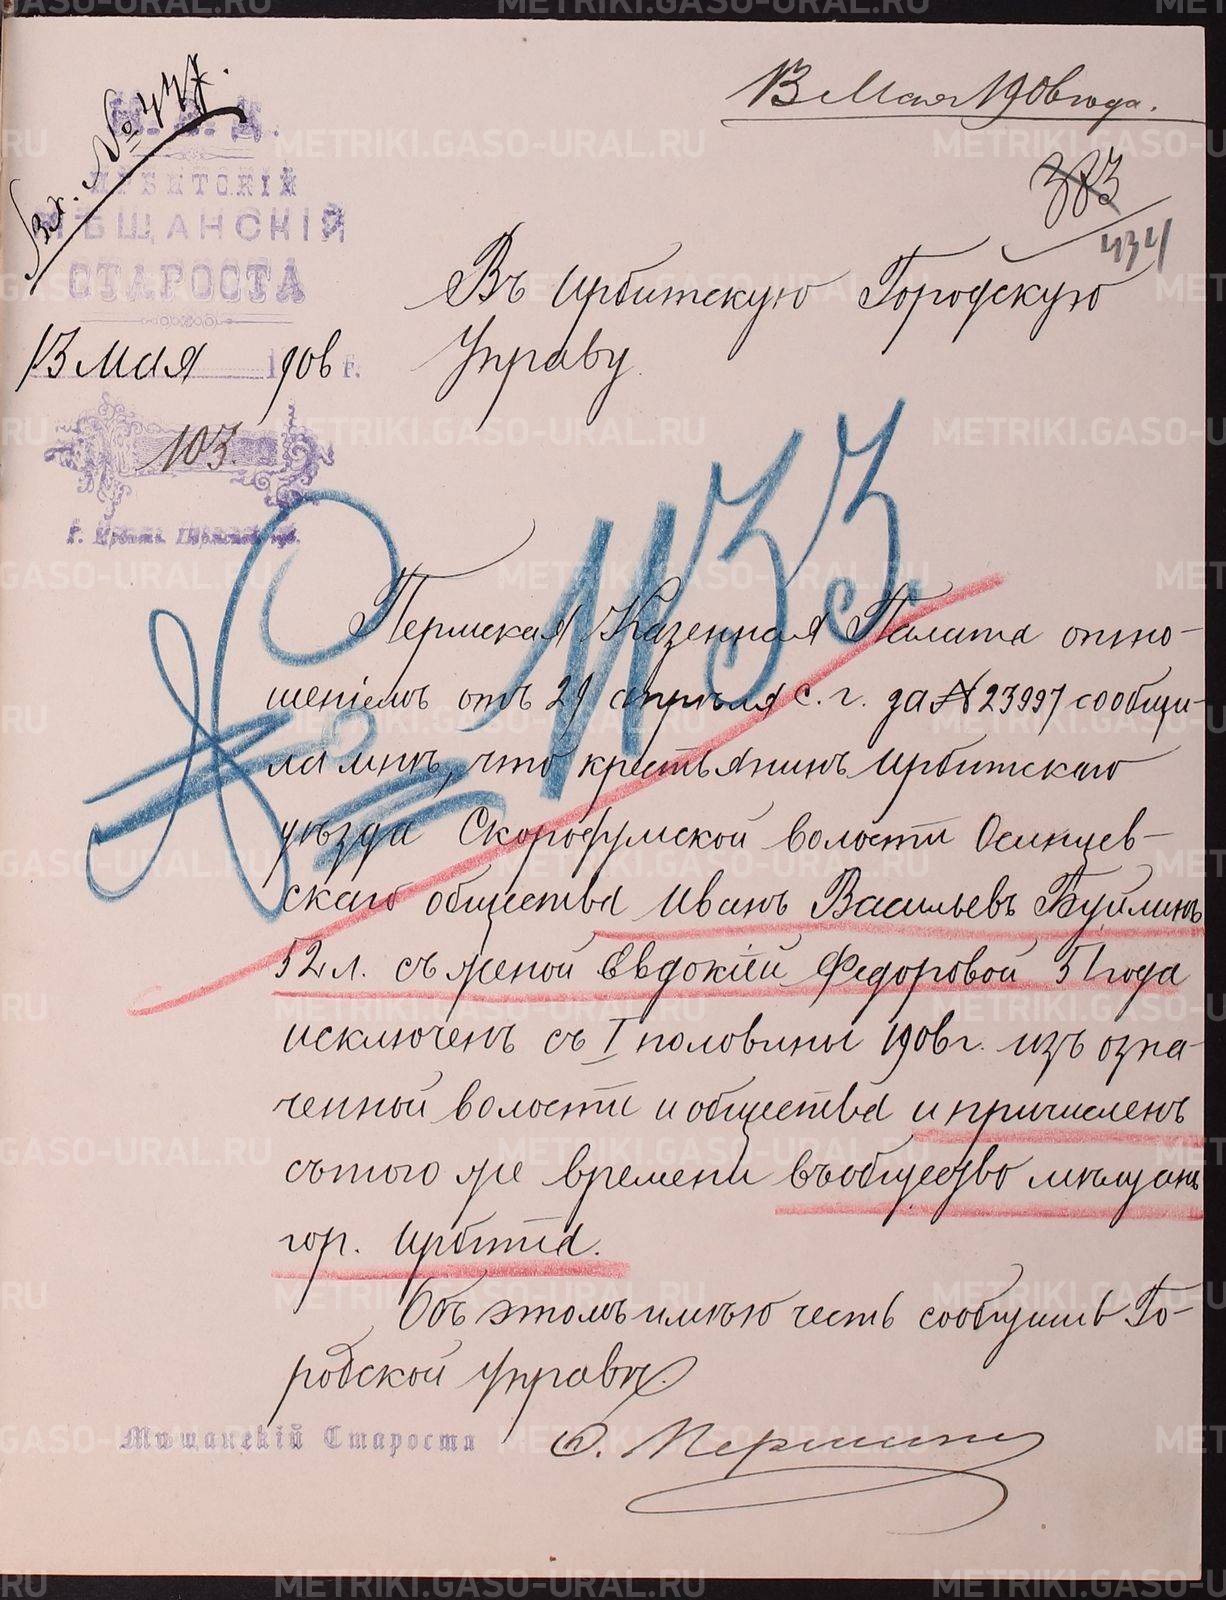 13 Мая 1906 года.
Вх. № 447.
М. В. Д.
ИРБИТСКІЙ
МѢЩАНСКІЙ
СТАРОСТА
13 мая 1906 г.
103.
г. Ирбитъ Пермской губ.
383
434
Въ Ирбитскую Городскую
Управу.
№ 1133
Пермская Казенная Палата отно-
шеніемъ отъ 29 апрѣля с. г. за № 23997 сообщи-
ла мнѣ, что крестьянинъ Ирбитскаго
уѣзда Скородумской волости Осинцев-
скаго общества Иванъ Васильевъ Буйлинъ
52 л. съ женой Евдокіей Федоровой 51 года
исключенъ съ I половины 1906 г. изъ озна-
ченной волости и общества и причисленъ
съ того же времени въ общество мѣщанъ
гор. Ирбита.
Объ этомъ имѣю честь сообщить Го-
родской Управѣ.
Мѣщанскій Староста